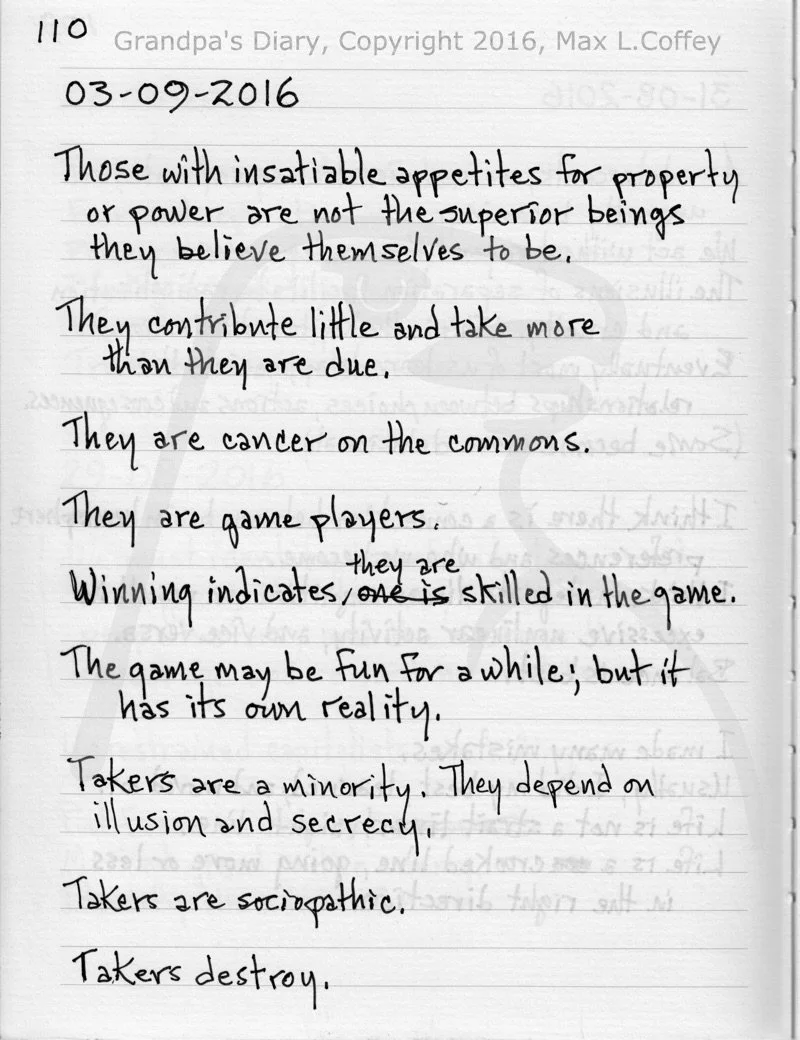 110
Grandpa's Diary, Copyright 2016, Max L.Coffey
03-09-2016
Those with insatiable appetites for property
or power are not the superior beings
they believe themselves to be.
They contribute little and take more
than they are due.
They are cancer on the commons.
They are game players.
they are
Winning indicates, one is skilled in the game.
The game may be fun for a while; but it
has its own reality.
Takers are a minority. They depend on
illusion and secrecy.
Takers are sociopathic.
Takers destroy.